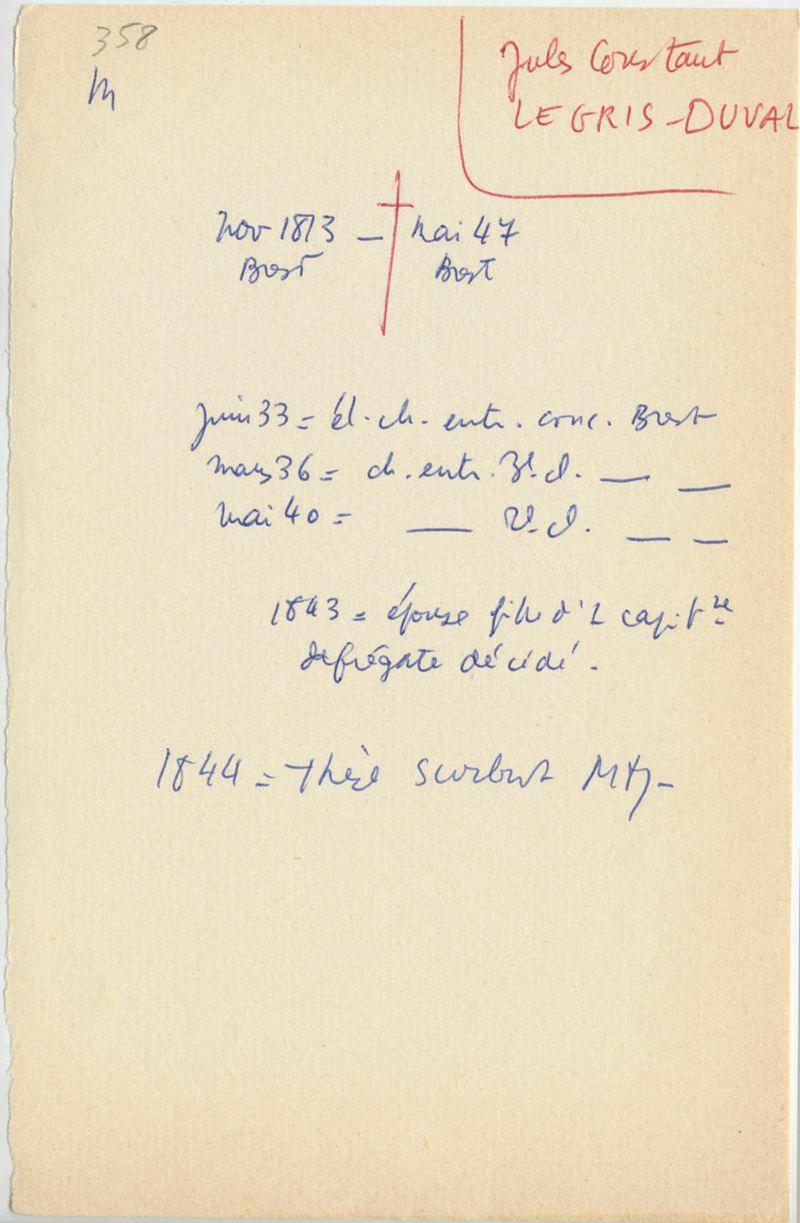 358
M
Jules Constant
LE GRIS-DUVAL
nov 1813 — mai 47
Brest Brest
juin 33 = él. ch. entr. conc. Brest
mars 36 = ch. entr. 3e cl. — —
mai 40 = — 2e cl. — —
1843 = épouse fille d'1 capitne
de frégate décédé.
1844 = Thèse Scorbut